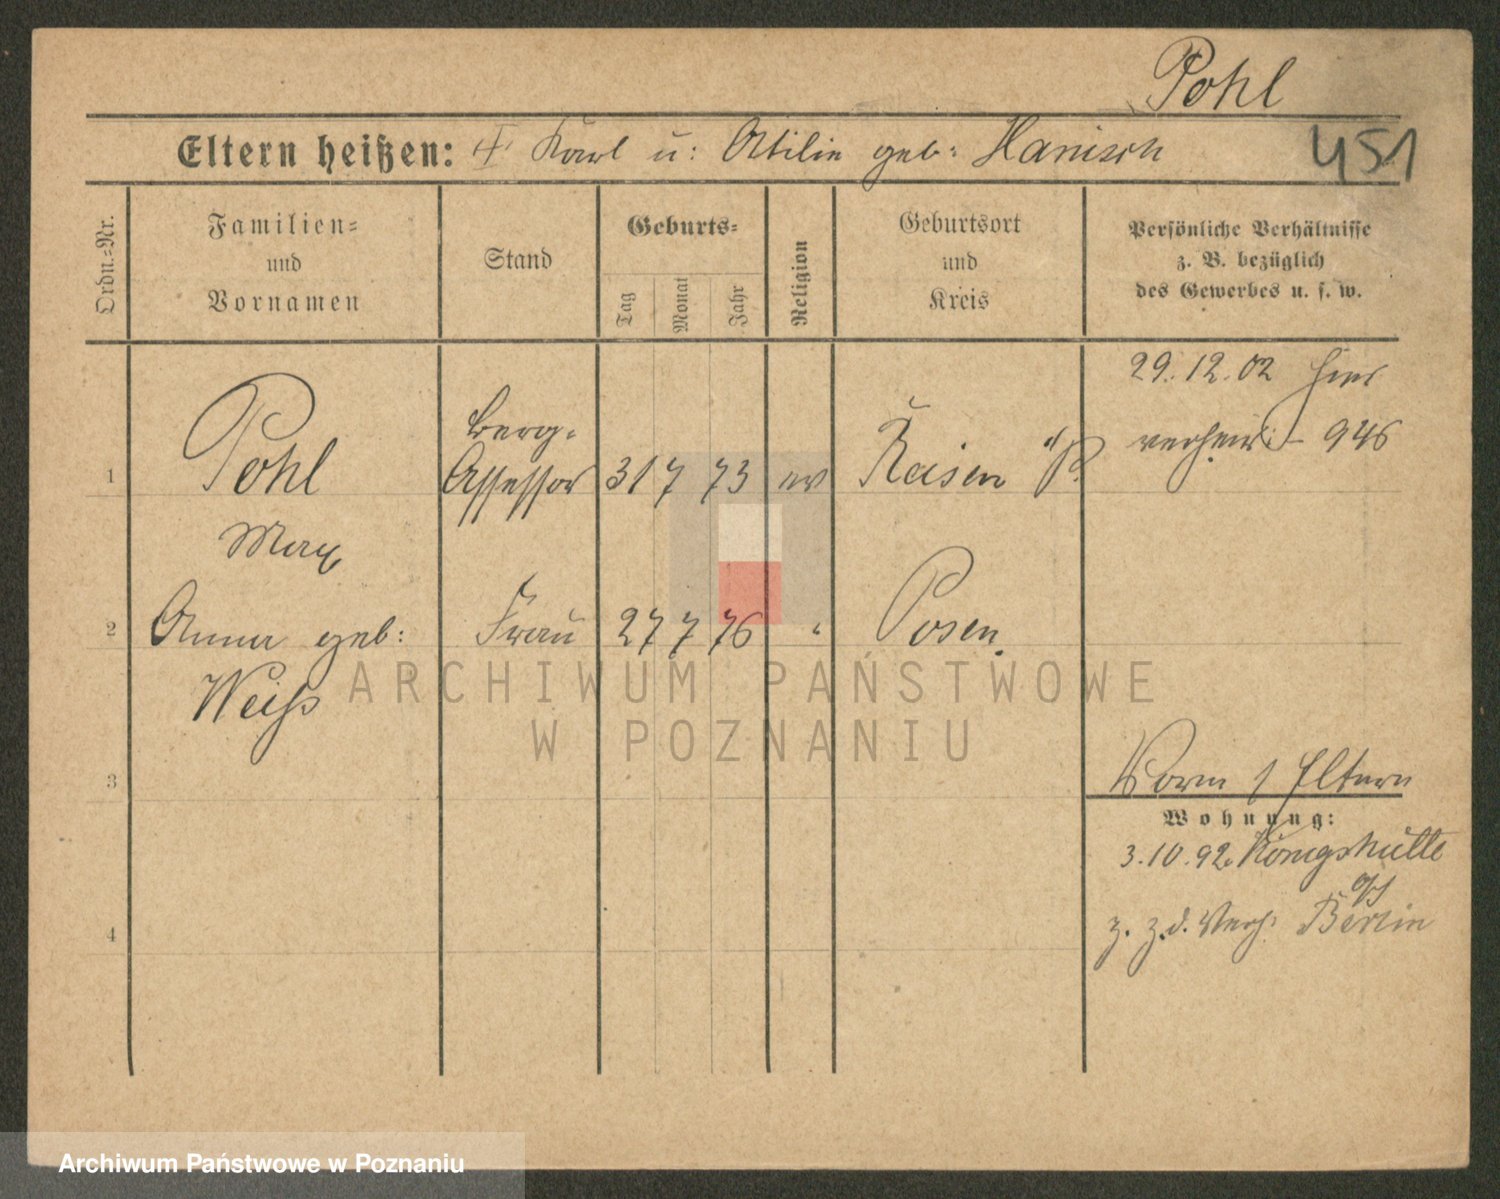 Pohl
Eltern heißen: Karl u: Ottilie geb: Hanisch
451
Ordn.=Nr.
Familien=
und
Vornamen
Stand
Geburts=
Tag
Monat
Jahr
Religion
Geburtsort
und
Kreis
Persönliche Verhältnisse
z. B. bezüglich
des Gewerbes u. s. w.
29.12.02 hier
verheir. – 946
1
Pohl
Max
Berg-
Assessor
31 7 73 ev
2
Anna geb:
Weiss
Frau
27 7 76 "
Posen.
ARCHIWUM PAŃSTWOWE
W POZNANIU
3
Eltern
Wohnung:
3.10.92. Königshütte
z. z. d. Verh. Berlin
4
Archiwum Państwowe w Poznaniu